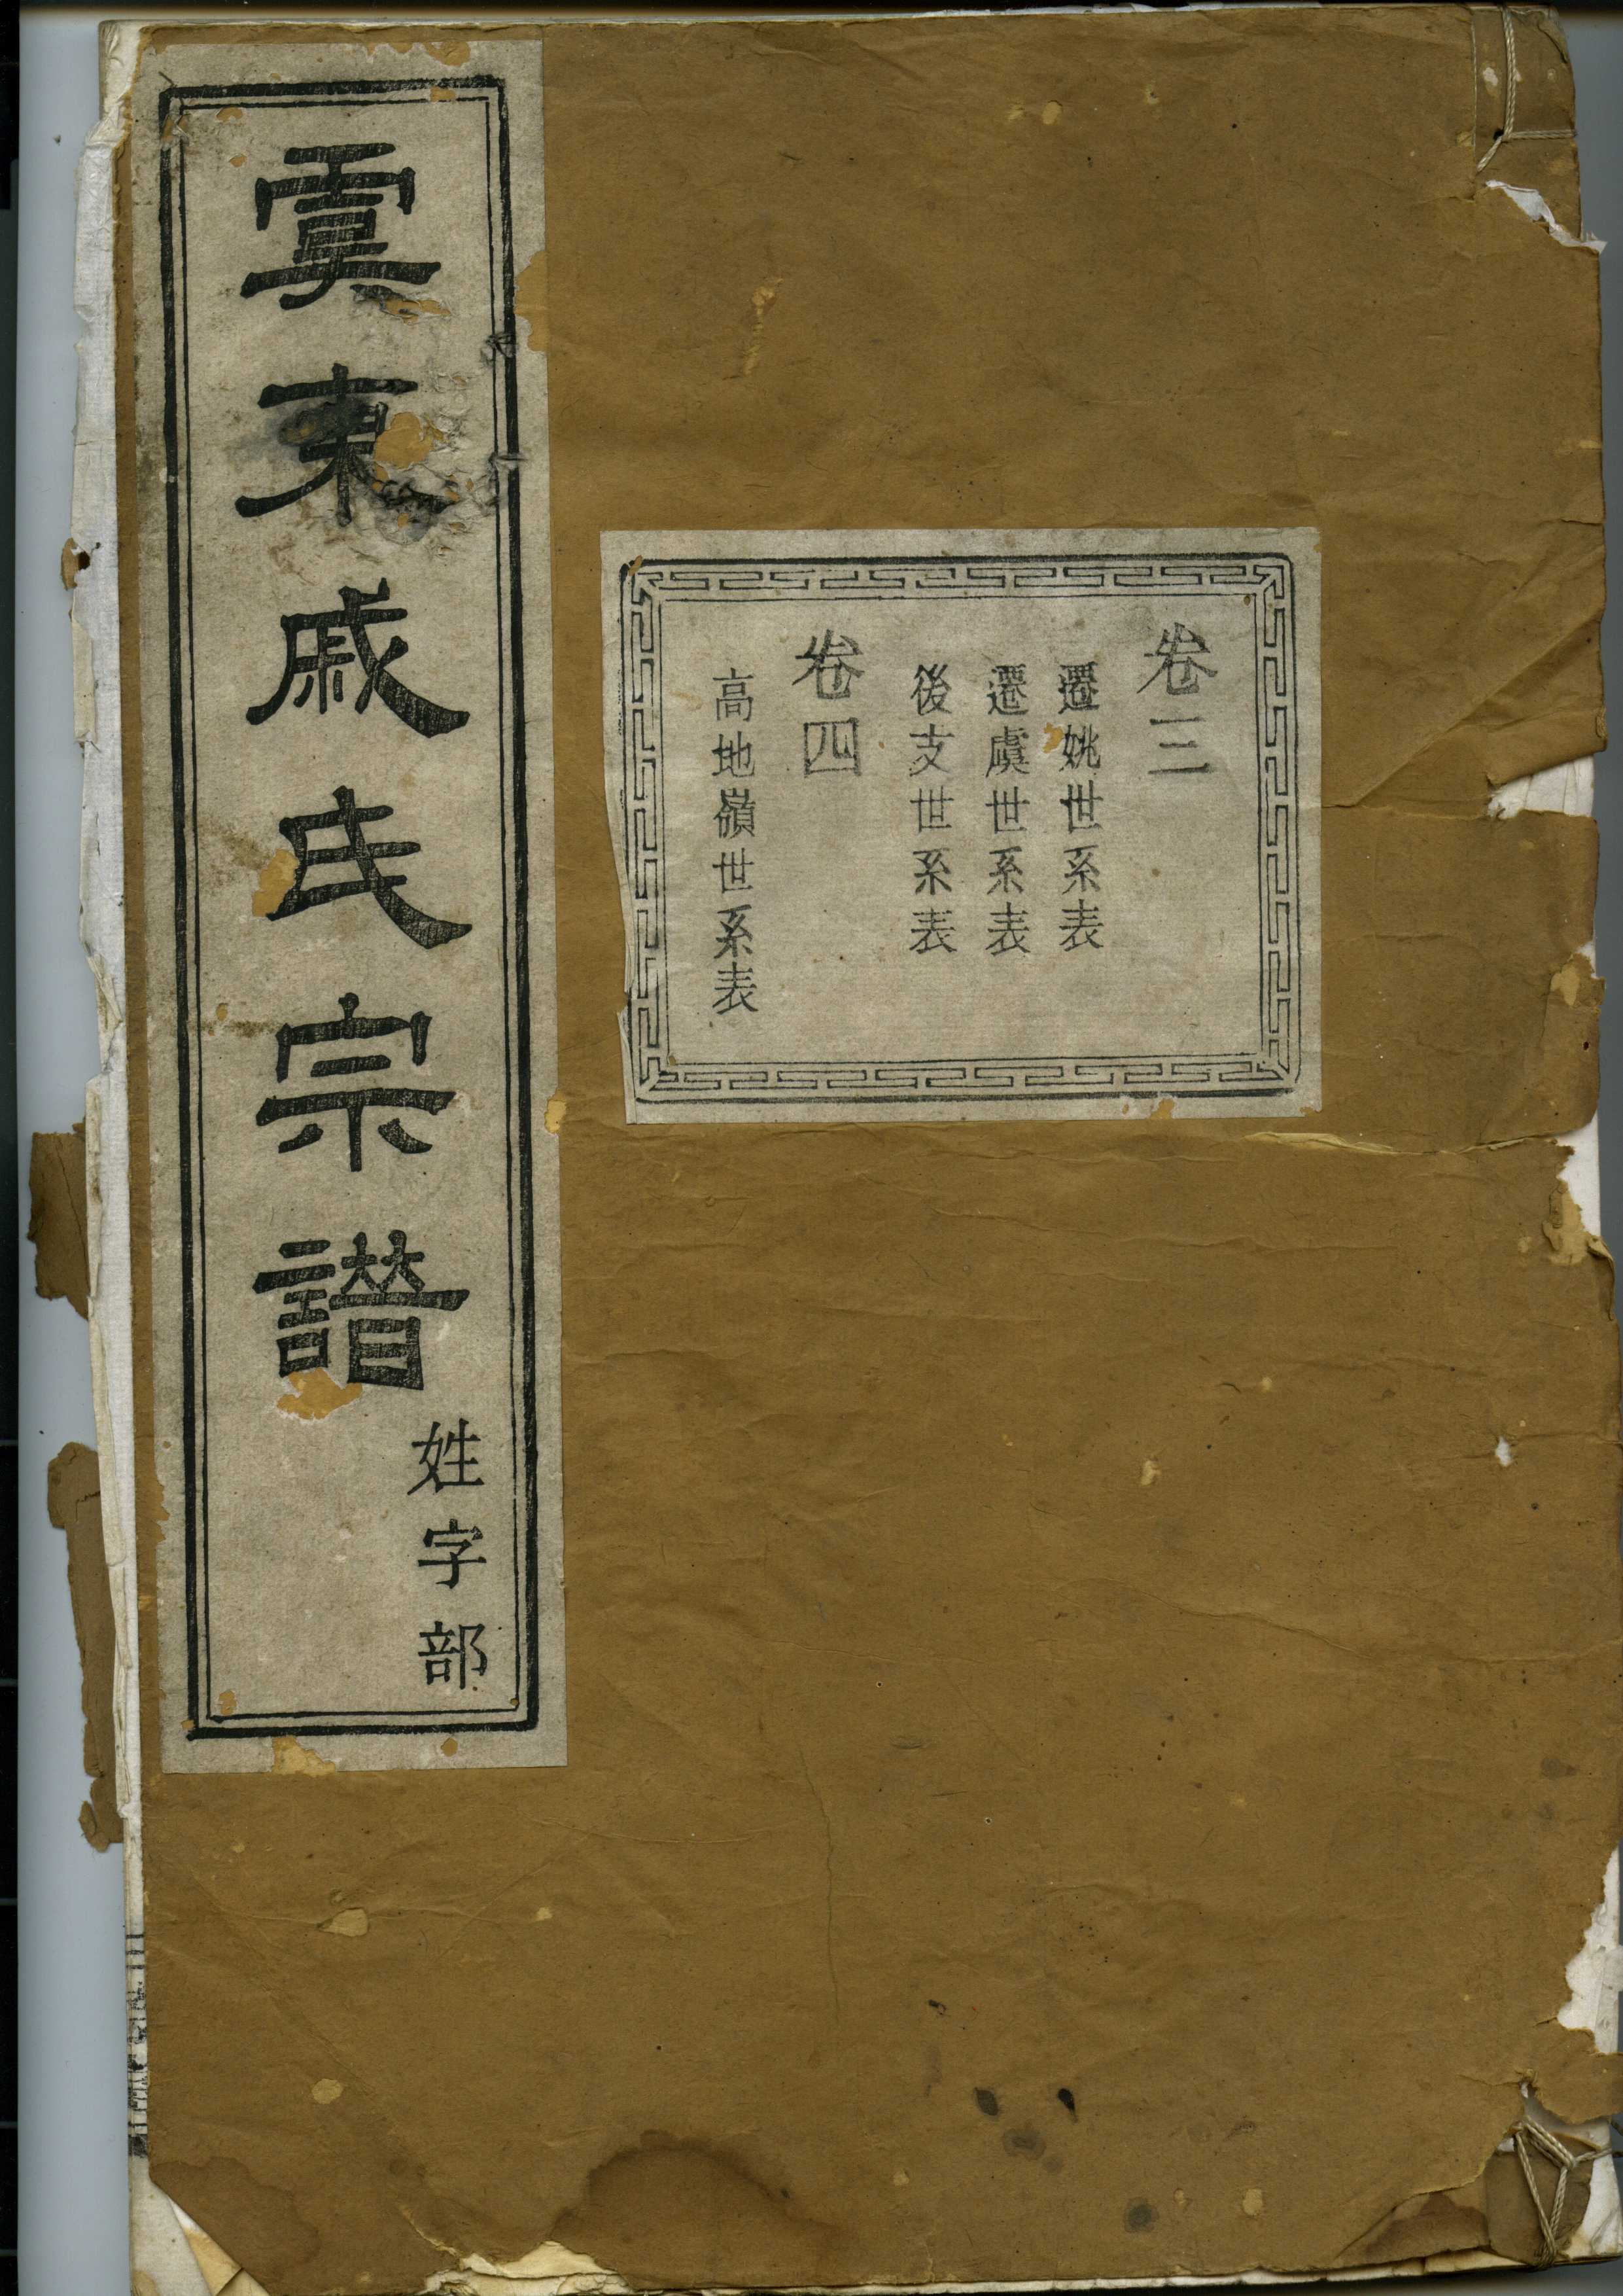 虞東戚氏宗譜
姓字部
卷三
遷姚世系表
遷虞世系表
後支世系表
卷四
高地嶺世系表